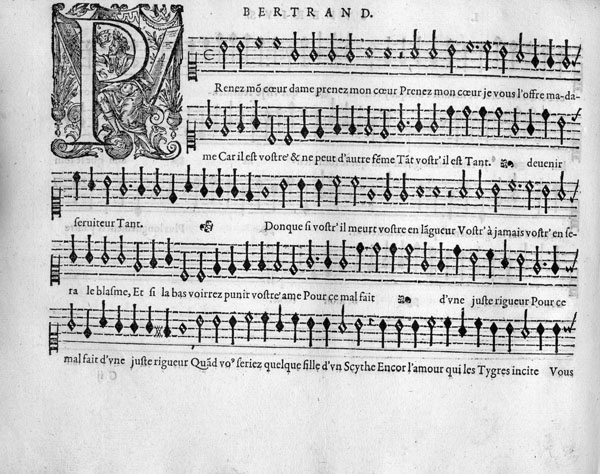 BERTRAND.
PRenez mõ cœur dame prenez mon cœur Prenez mon cœur je vous l'offre ma-da-
me Car il est vostre' & ne peut d'autre fẽme Tãt vostr' il est Tant. devenir
serviteur Tant. Donque si vostr' il meurt vostre en lãgueur Vostr' à jamais vostr' en se-
ra le blasme, Et si la bas voirrez punir vostre' ame Pour ce mal fait d'vne juste rigueur Pour ce
mal fait d'vne juste rigueur Quãd vo⁹ seriez quelque fille d'vn Scythe Encor l'amour qui les Tygres incite Vous